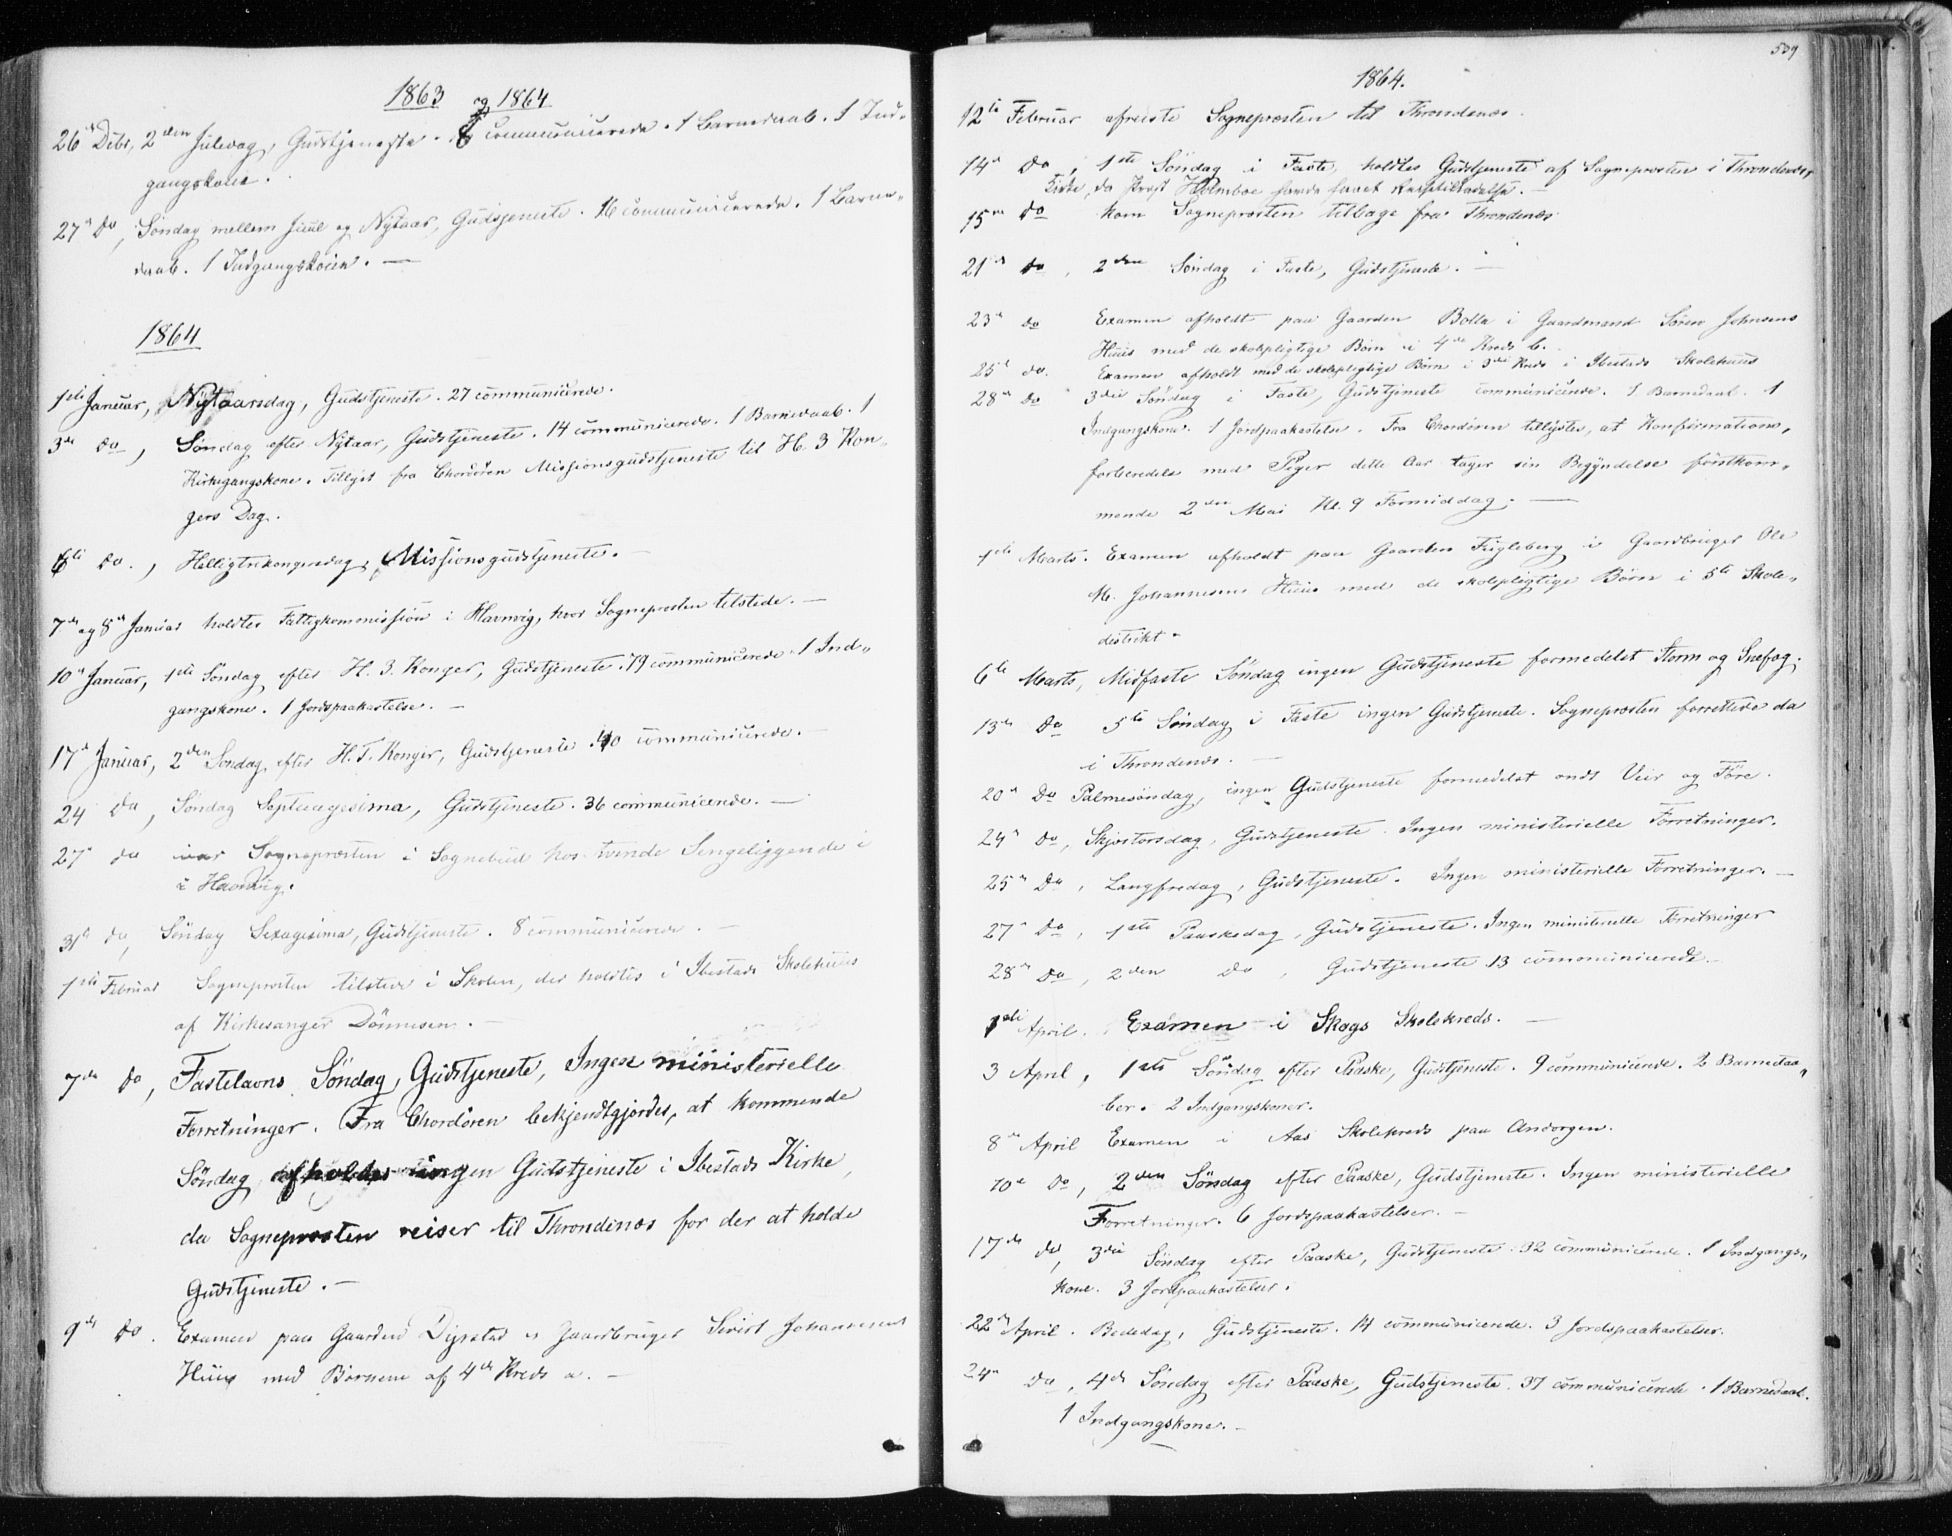 1863 og 1864
26de Debr, 2den Juledag, Gudstjeneste. 8 communicerede. 1 Barnedaab. 1 Ind„
gangskone.
27de do, Søndag mellem Juul og Nytaar, Gudstjeneste. 16 communicerede. 1 Barne„
daab. 1 Indgangskone. —
1864
1ste Januar, Nytaarsdag, Gudstjeneste. 27 communicerede.
3de do, Søndag efter Nytaar, Gudstjeneste. 14 communicerede. 1 Barnedaab. 1
Kirkegangskone. Tillyst fra Chordøren Missionsgudstjeneste til H. 3 Kon„
gers Dag.
6te do., Helligtrekongersdag, Missionsgudstjeneste. —
7de og 8de Januar holdtes Fattigkommission i Havnvig, hvor Sognepresten tilstede. —
10de Januar, 1ste Søndag efter H. 3. Konger, Gudstjeneste. 79 communicerede. 1 Ind„
gangskone. 1 Jordpaakastelse. —
17de Januar, 2den Søndag efter H. T. Konger, Gudstjeneste. 40 communicerede. —
24 do, Søndag Septuagesima, Gudstjeneste. 36 communicerede. —
27de do var Sognepresten i Sognebud hos tvende Sengeliggende i
i Havnvig.
31te do, Søndag Sexagesima, Gudstjeneste. 8 communicerede. —
1ste Februar Sognepresten tilstede i Skolen, der holdtes i Ibestads Skolehuus
af Kirkesanger Dønnesen. —
7de do, Fastelavns Søndag, Gudstjeneste, Ingen ministerielle
Forretninger. Fra Chordøren bekjendtgjordes, at kommende
Søndag afholdes ingen Gudstjeneste i Ibestads Kirke,
da Sognepresten reiser til Throndenes for der at holde
Gudstjeneste. —
9de do. Examen paa Gaarden Dyrstad i Gaardbruger Sivert Johannesens
Huus med Børnene af 4de Kreds a. —
509
1864.
12te Februar afreiste Sognepresten til Throndenes.
14de do, 1ste Søndag i Faste, holdtes Gudstjeneste af Sognepresten i Throndenes
Kirke, da Prost Holmboe havde faaet Reisetilladelse. —
15de do kom Sognepresten tilbage fra Throndenes
21de do, 2den Søndag i Faste, Gudstjeneste. —
23de do Examen afholdt paa Gaarden Bolla i Gaardmand Søren Johnsens
Huus med de skolepligtige Børn i 4de Kreds b.
25de do. Examen afholdt med de skolepligtige Børn i 3die Kreds i Ibestads Skolehuus
28de do 3die Søndag i Faste, Gudstjeneste communicerede. 1 Barnedaab. 1
Indgangskone. 1 Jordpaakastelse. Fra Chordøren tillystes, at Konfirmations„
forberedelse med Piger dette Aar tager sin Begyndelse førstkom„
mende 2den Mai Kl. 9 Formiddag. —
1ste Marts. Examen afholdt paa Gaarden Fugleberg i Gaardbruger Ole
M. Johannesens Huus med de skolepligtige Børn i 5te Skole„
distrikt.
6te Marts, Midfaste Søndag ingen Gudstjeneste formedelst Storm og Snefog.
13de do 5te Søndag i Faste ingen Gudstjeneste. Sognepresten forrettede da
i Throndenes. —
20de do Palmesøndag, ingen Gudstjeneste formedelst ondt Veir og Føre.
24de do, Skjærtorsdag, Gudstjeneste. Ingen ministerielle Forretninger.
25de do, Langfredag, Gudstjeneste. Ingen ministerielle Forretninger. —
27de do, 1ste Paaskedag, Gudstjeneste. Ingen ministerielle Forretninger
28de do, 2den do, Gudstjeneste. 13 communicerede. —
1ste April. Examen i Skogs Skolekreds. —
3 April, 1ste Søndag efter Paaske, Gudstjeneste. 9 communicerede. 2 Barnedaa„
ber. 2 Indgangskoner.
8de April Examen i Aas Skolekreds paa Andorgen.
10de do, 2den Søndag efter Paaske, Gudstjeneste. Ingen ministerielle
Forretninger. 6 Jordpaakastelser. —
17de do, 3die Søndag efter Paaske, Gudstjeneste. 32 communicerede. 1 Indgangs„
kone. 3 Jordpaakastelser.
22de April. Bededag, Gudstjeneste. 14 communicerede. 3 Jordspaakastelser.
24de do, 4de Søndag efter Paaske, Gudstjeneste. 37 communicerede. 1 Barnedaab.
1 Indgangskone. —